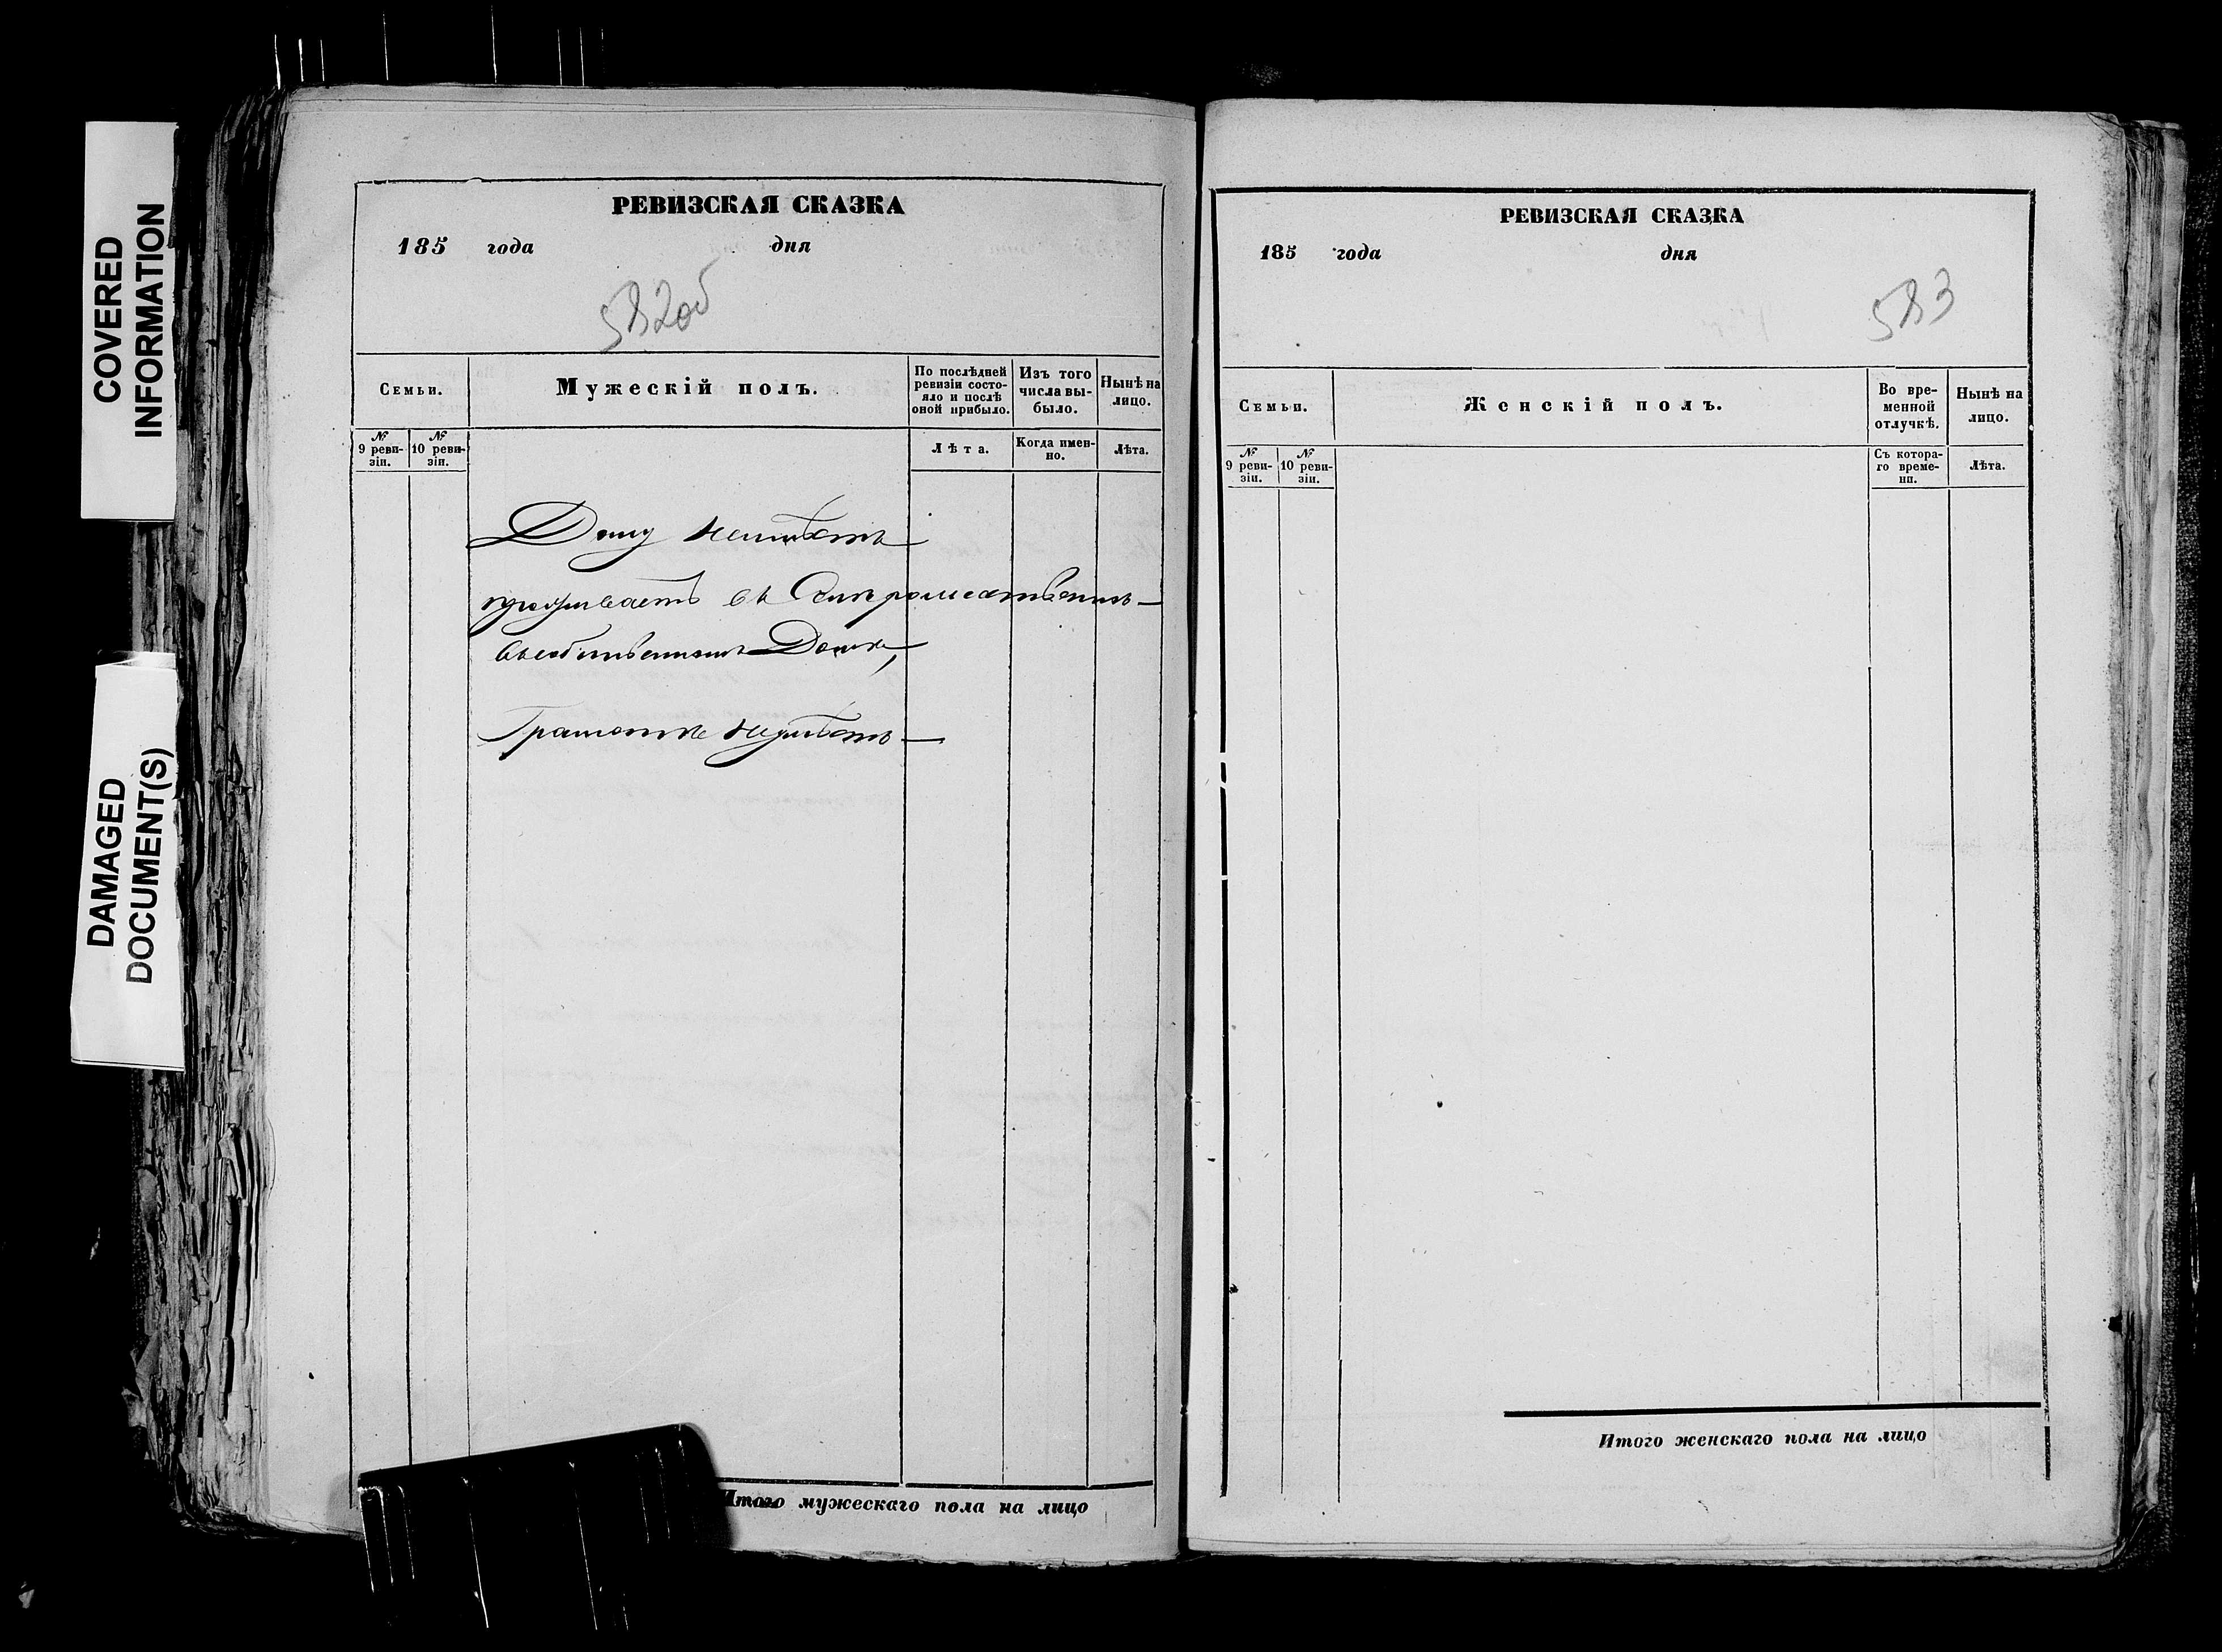 COVERED
INFORMATION
DAMAGED
DOCUMENT(S)
РЕВИЗСКАЯ СКАЗКА
185 года дня
582об
Семьи.
Мужескій полъ.
По послѣдней ревизіи состояло и послѣ оной прибыло.
Изъ того числа выбыло.
Нынѣ на лицо.
№ 9 ревизіи.
№ 10 ревизіи.
Лѣта.
Когда именно.
Лѣта.
Дому неимѣетъ
проживаетъ въ
въ собственномъ Доме,
Грамотѣ неумѣетъ
Итого мужескаго пола на лицо
РЕВИЗСКАЯ СКАЗКА
185 года дня
583
Семьи.
Женскій полъ.
Во временной отлучкѣ.
Нынѣ на лицо.
№ 9 ревизіи.
№ 10 ревизіи.
Съ котораго времени.
Лѣта.
Итого женскаго пола на лицо